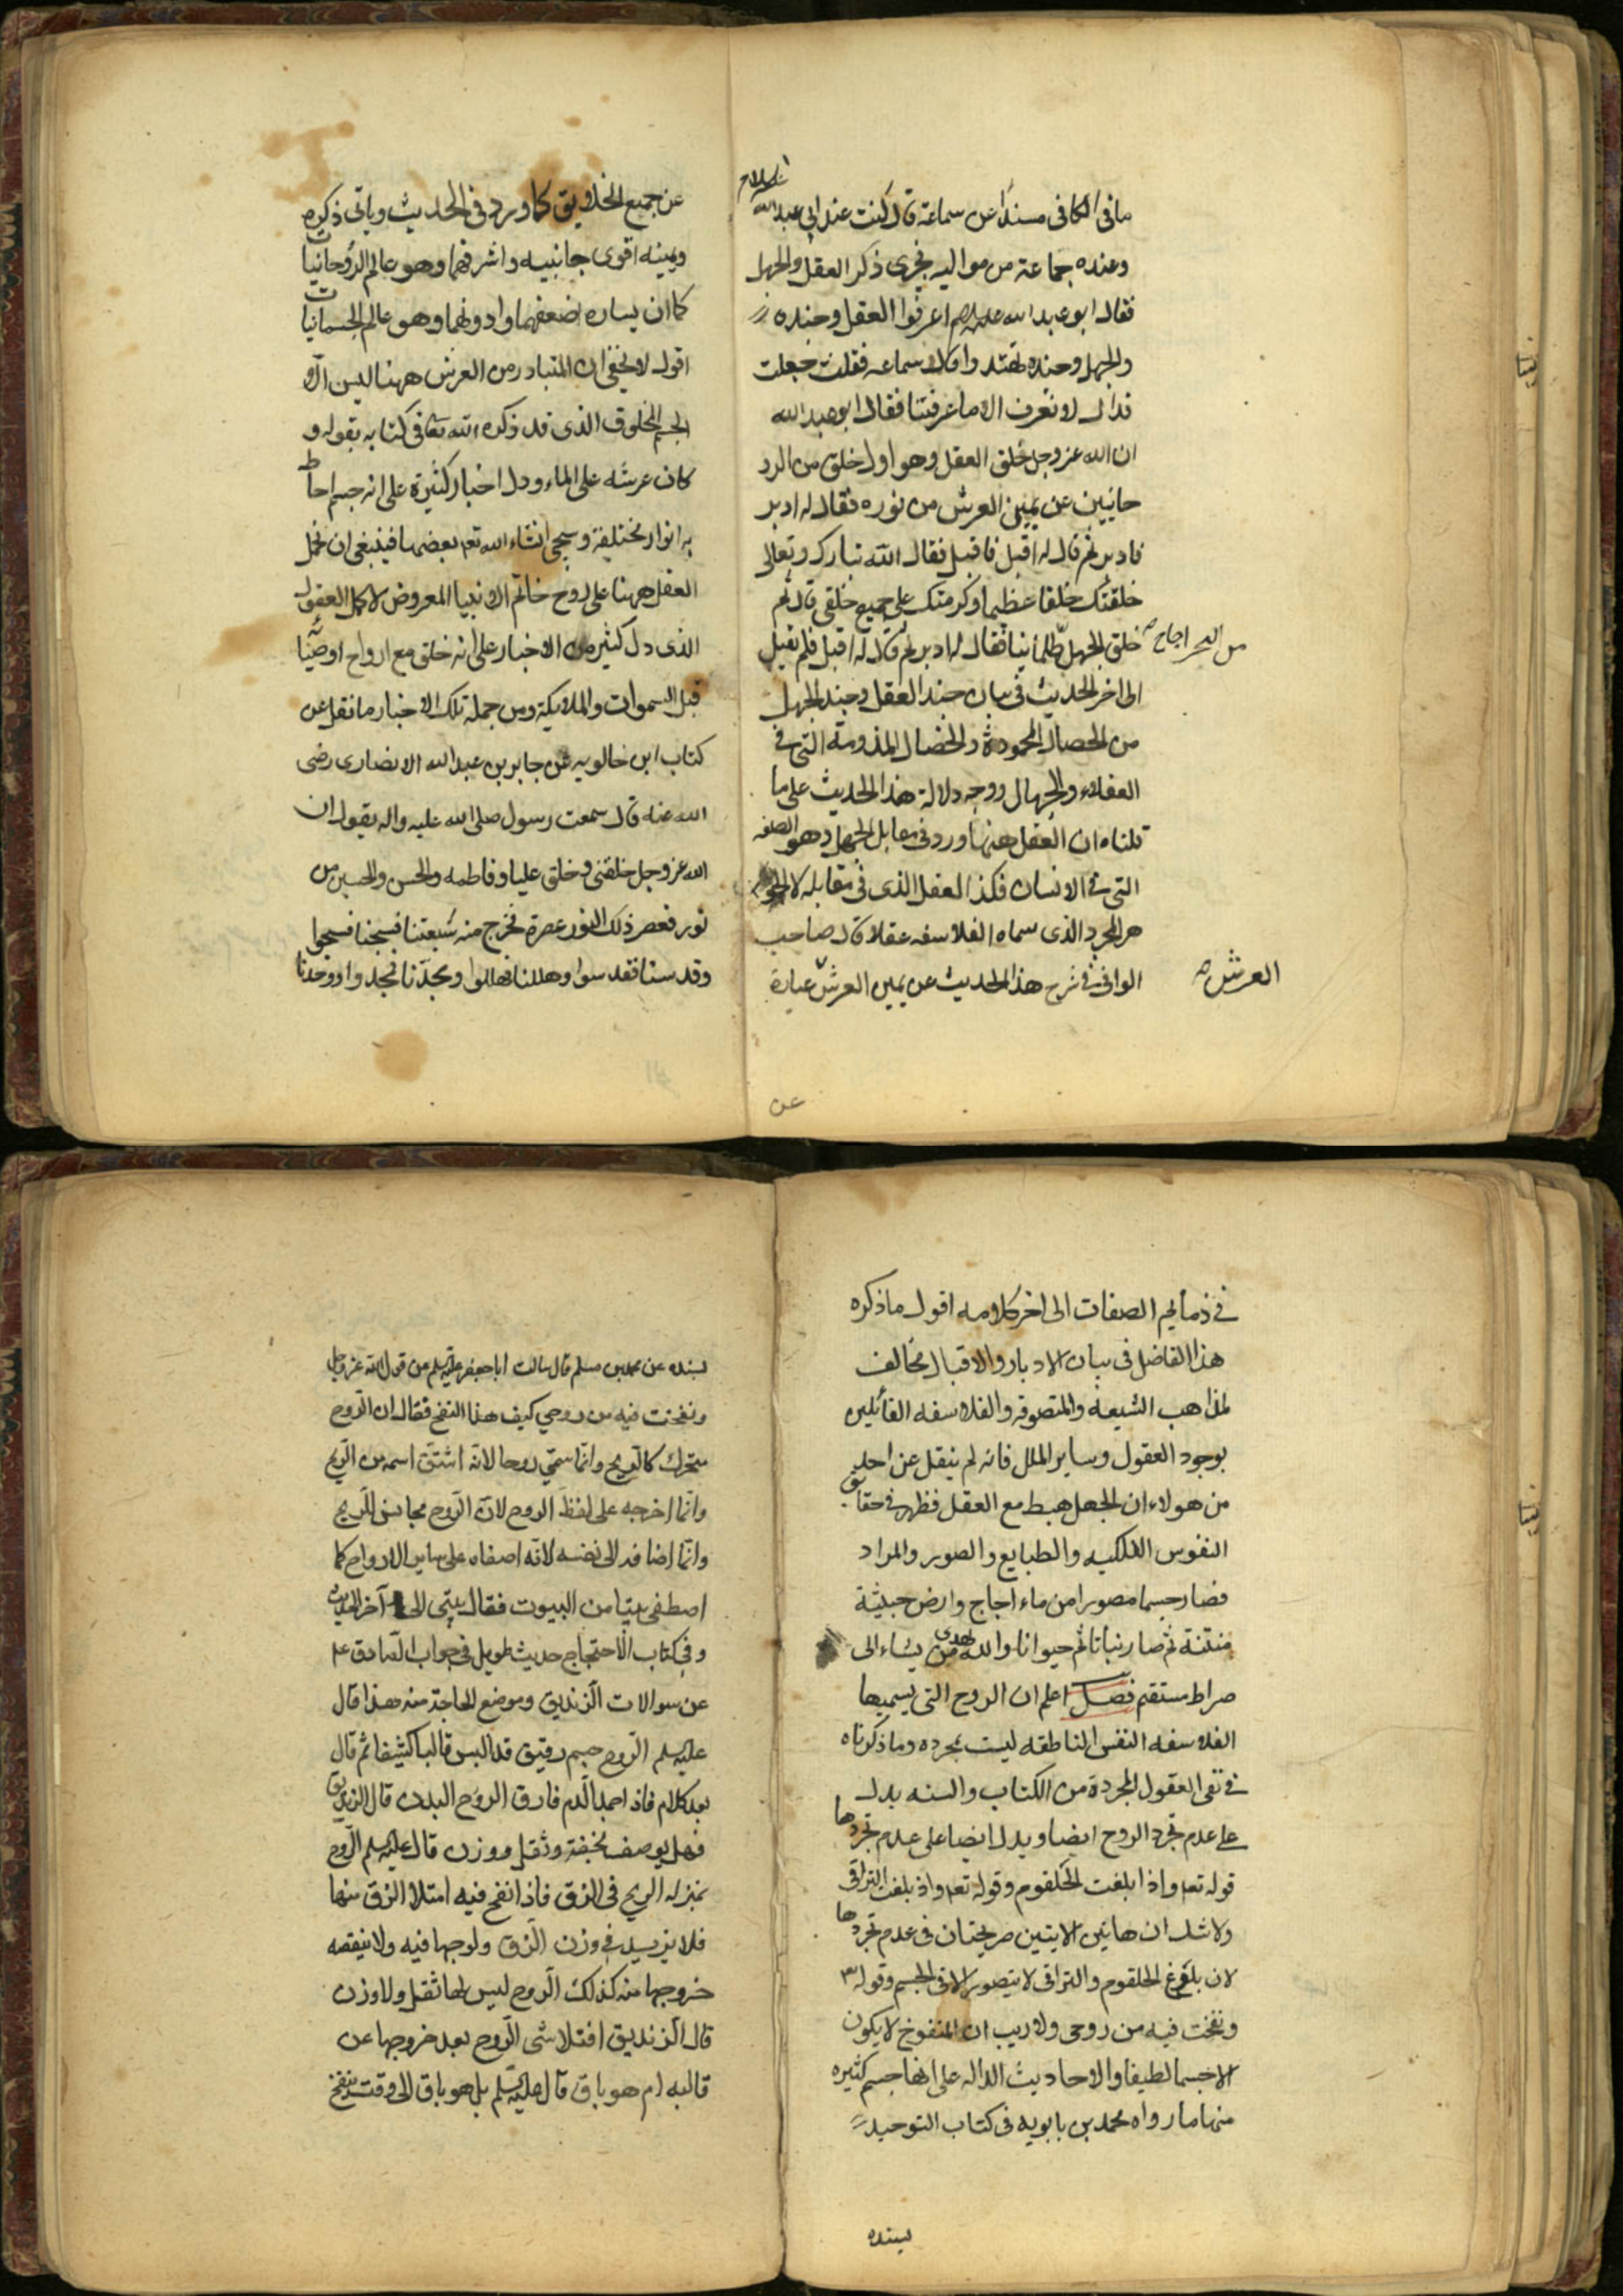 ما فى الكافى مسندا عن سماعة قال كنت عند ابى عبد الله
عليه السلام
وعنده جماعة من مواليه فجرى ذكر العقل والجهل
فقال ابو عبد الله عليه السلم اعرفوا العقل وجنده
والجهل وجنده تهتدوا قال سماعه فقلت جعلت
فداك لا نعرف الا ما عرفتنا فقال ابو عبد الله
ان الله عز وجل خلق العقل وهو اول خلق من الرو
حانيين عن يمين العرش من نوره فقال له ادبر
فادبر ثم قال له اقبل فاقبل فقال الله تبارك وتعالى
خلقتك خلقا عظيما وكرمتك على جميع خلقى قال ثم
خلق الجهل ظلمانيا فقال له ادبر ثم قال له اقبل فلم يقبل
من البحر اجاج صح
الى اخر الحديث فى بيان جند العقل وجند الجهل
من الخصال المحمودة والخصال المذمومة التى فى
العقلاء والجهال ووجه دلالة هذا الحديث على ما
قلناه ان العقل هنهنا ورد فى مقابل الجهل وهو الصفه
التى فى الانسان فكذا العقل الذى فى مقابله لا
هر المجرد الذى سماه الفلاسفه عقلا قال صاحب
الوافى فى شرح هذا الحديث عن يمين العرش عبارة
العرش صح
عن
عن جميع الخلايق كما ورد فى الحديث وياتى ذكره
ويمينه اقوى جانبيه واشرفهما وهو عالم الروحانيات
كما ان يساره اضعفهما وادونهما وهو عالم الجسمانيات
اقول لا يخفى ان المتبادر من العرش ههنا ليس الا
الجسم المخلوق الذى قد ذكره الله تعالى فى كتابه بقوله و
كان عرشه على الماء ودل اخبار كثيرة على انه جسم احاط
به انوار مختلفة وسيجى انشاء الله تعه بعضها فينبغى ان نحمل
العقل ههنا على روح خاتم الانبيا المعروض لاكمل العقول
الذى دل كثير من الاخبار على انه خلق مع ارواح اوصيائه
قبل السموات والملايكة ومن جملة تلك الاخبار ما نقل عن
كتاب ابن خالويه عن جابر بن عبد الله الانصارى رضى
الله عنه قال سمعت رسول صلى الله عليه واله يقول ان
الله عز وجل خلقنى وخلق عليا وفاطمه والحسن والحسين من
نور فعصر ذلك النور عصرة فخرج منه شيعتنا فسبحنا فسبحوا
وقدسنا فقدسوا وهللنا فهللوا ومجدنا فمجدوا ووحدنا
فى ذمائم الصفات الى اخر كلامه اقول ما ذكره
هذا الفاضل فى بيان الادبار والاقبال مخالف
لمذاهب الشيعة والمتصوفه والفلاسفه القائلين
بوجود العقول وساير الملل فانه لم ينقل عن احد
من هولاء ان الجهل هبط مع العقل فظهر فى حقايق
النفوس الفلكيه والطبايع والصور والمراد
فصار جسما مصورا من ماء اجاج وارض خبيثة
منتنة ثم صار نباتا ثم حيوانا والله يهدى من يشاء الى
صراط مستقيم فصل اعلم ان الروح التى يسميها
الفلاسفه النفس الناطقه ليست بمجرده وما ذكرناه
فى نفى العقول المجردة من الكتاب والسنه يدل
على عدم تجرد الروح ايضا ويدل ايضا على عدم تجردها
قوله تعه واذا بلغت الحلقوم وقوله تعه واذ بلغت التراقى
ولا شك ان هاتين الايتين صريحتان فى عدم تجردها
لان بلوغ الحلقوم والتراقى لا يتصور الا فى الجسم وقوله
ونفخت فيه من روحى ولا ريب ان المنفوخ لا يكون
الا جسما لطيفا والاحاديث الداله على انها جسم كثيره
منها ما رواه محمد بن بابويه فى كتاب التوحيد
بسنده
بسنده عن محمد بن مسلم قال سالت ابا جعفر عليه السلم عن قول الله عز وجل
ونفخت فيه من روحي كيف هذا النفخ فقال ان الروح
متحرك كالريح وانما سمي روحا لانه اشتق اسمه من الريح
وانما اخرجه على لفظ الروح لان الروح مجانس للريح
وانما اضافه الى نفسه لانه اصفاه على ساير الارواح كما
اصطفى بيتا من البيوت فقال بيتى الى آخر الحديث
وفى كتاب الاحتجاج حديث طويل فى جواب الصادق عم
عن سوالات الزنديق وموضع الحاجة منه هذا قال
عليه السلم الروح جسم رقيق قد البس قالبا كثيفا ثم قال
بعد كلام فاذا جمد الدم فارق الروح البدن قال الزنديق
فهل يوصف بخفة وثقل ووزن قال عليه السلم الروح
بمنزله الريح فى الزق فاذا نفخ فيه امتلا الزق منها
فلا يزيد فى وزن الزق ولوجها فيه ولا ينقصه
خروجها منه كذلك الروح ليس لها ثقل ولا وزن
قال الزنديق افتلاشى الروح بعد خروجها عن
قالبه ام هو باق قال عليه السلم بل هو باق الى وقت ينفخ